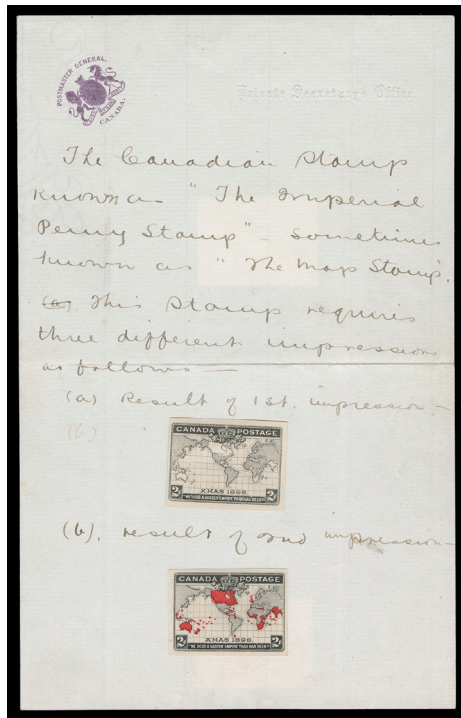 POSTMASTER GENERAL.
CANADA.
Private Secretary's Office.
The Canadian Stamp
known as "The Imperial
Penny Stamp" - sometimes
known as "The Map Stamp".
(a) This stamp requires
three different impressions
as follows —
(a) Result of 1st. impression —
(b)
CANADA POSTAGE
XMAS 1898.
2 2
"WE HOLD A VASTER EMPIRE THAN HAS BEEN"
(b). result of 2nd impression —
CANADA POSTAGE
XMAS 1898.
2 2
"WE HOLD A VASTER EMPIRE THAN HAS BEEN"